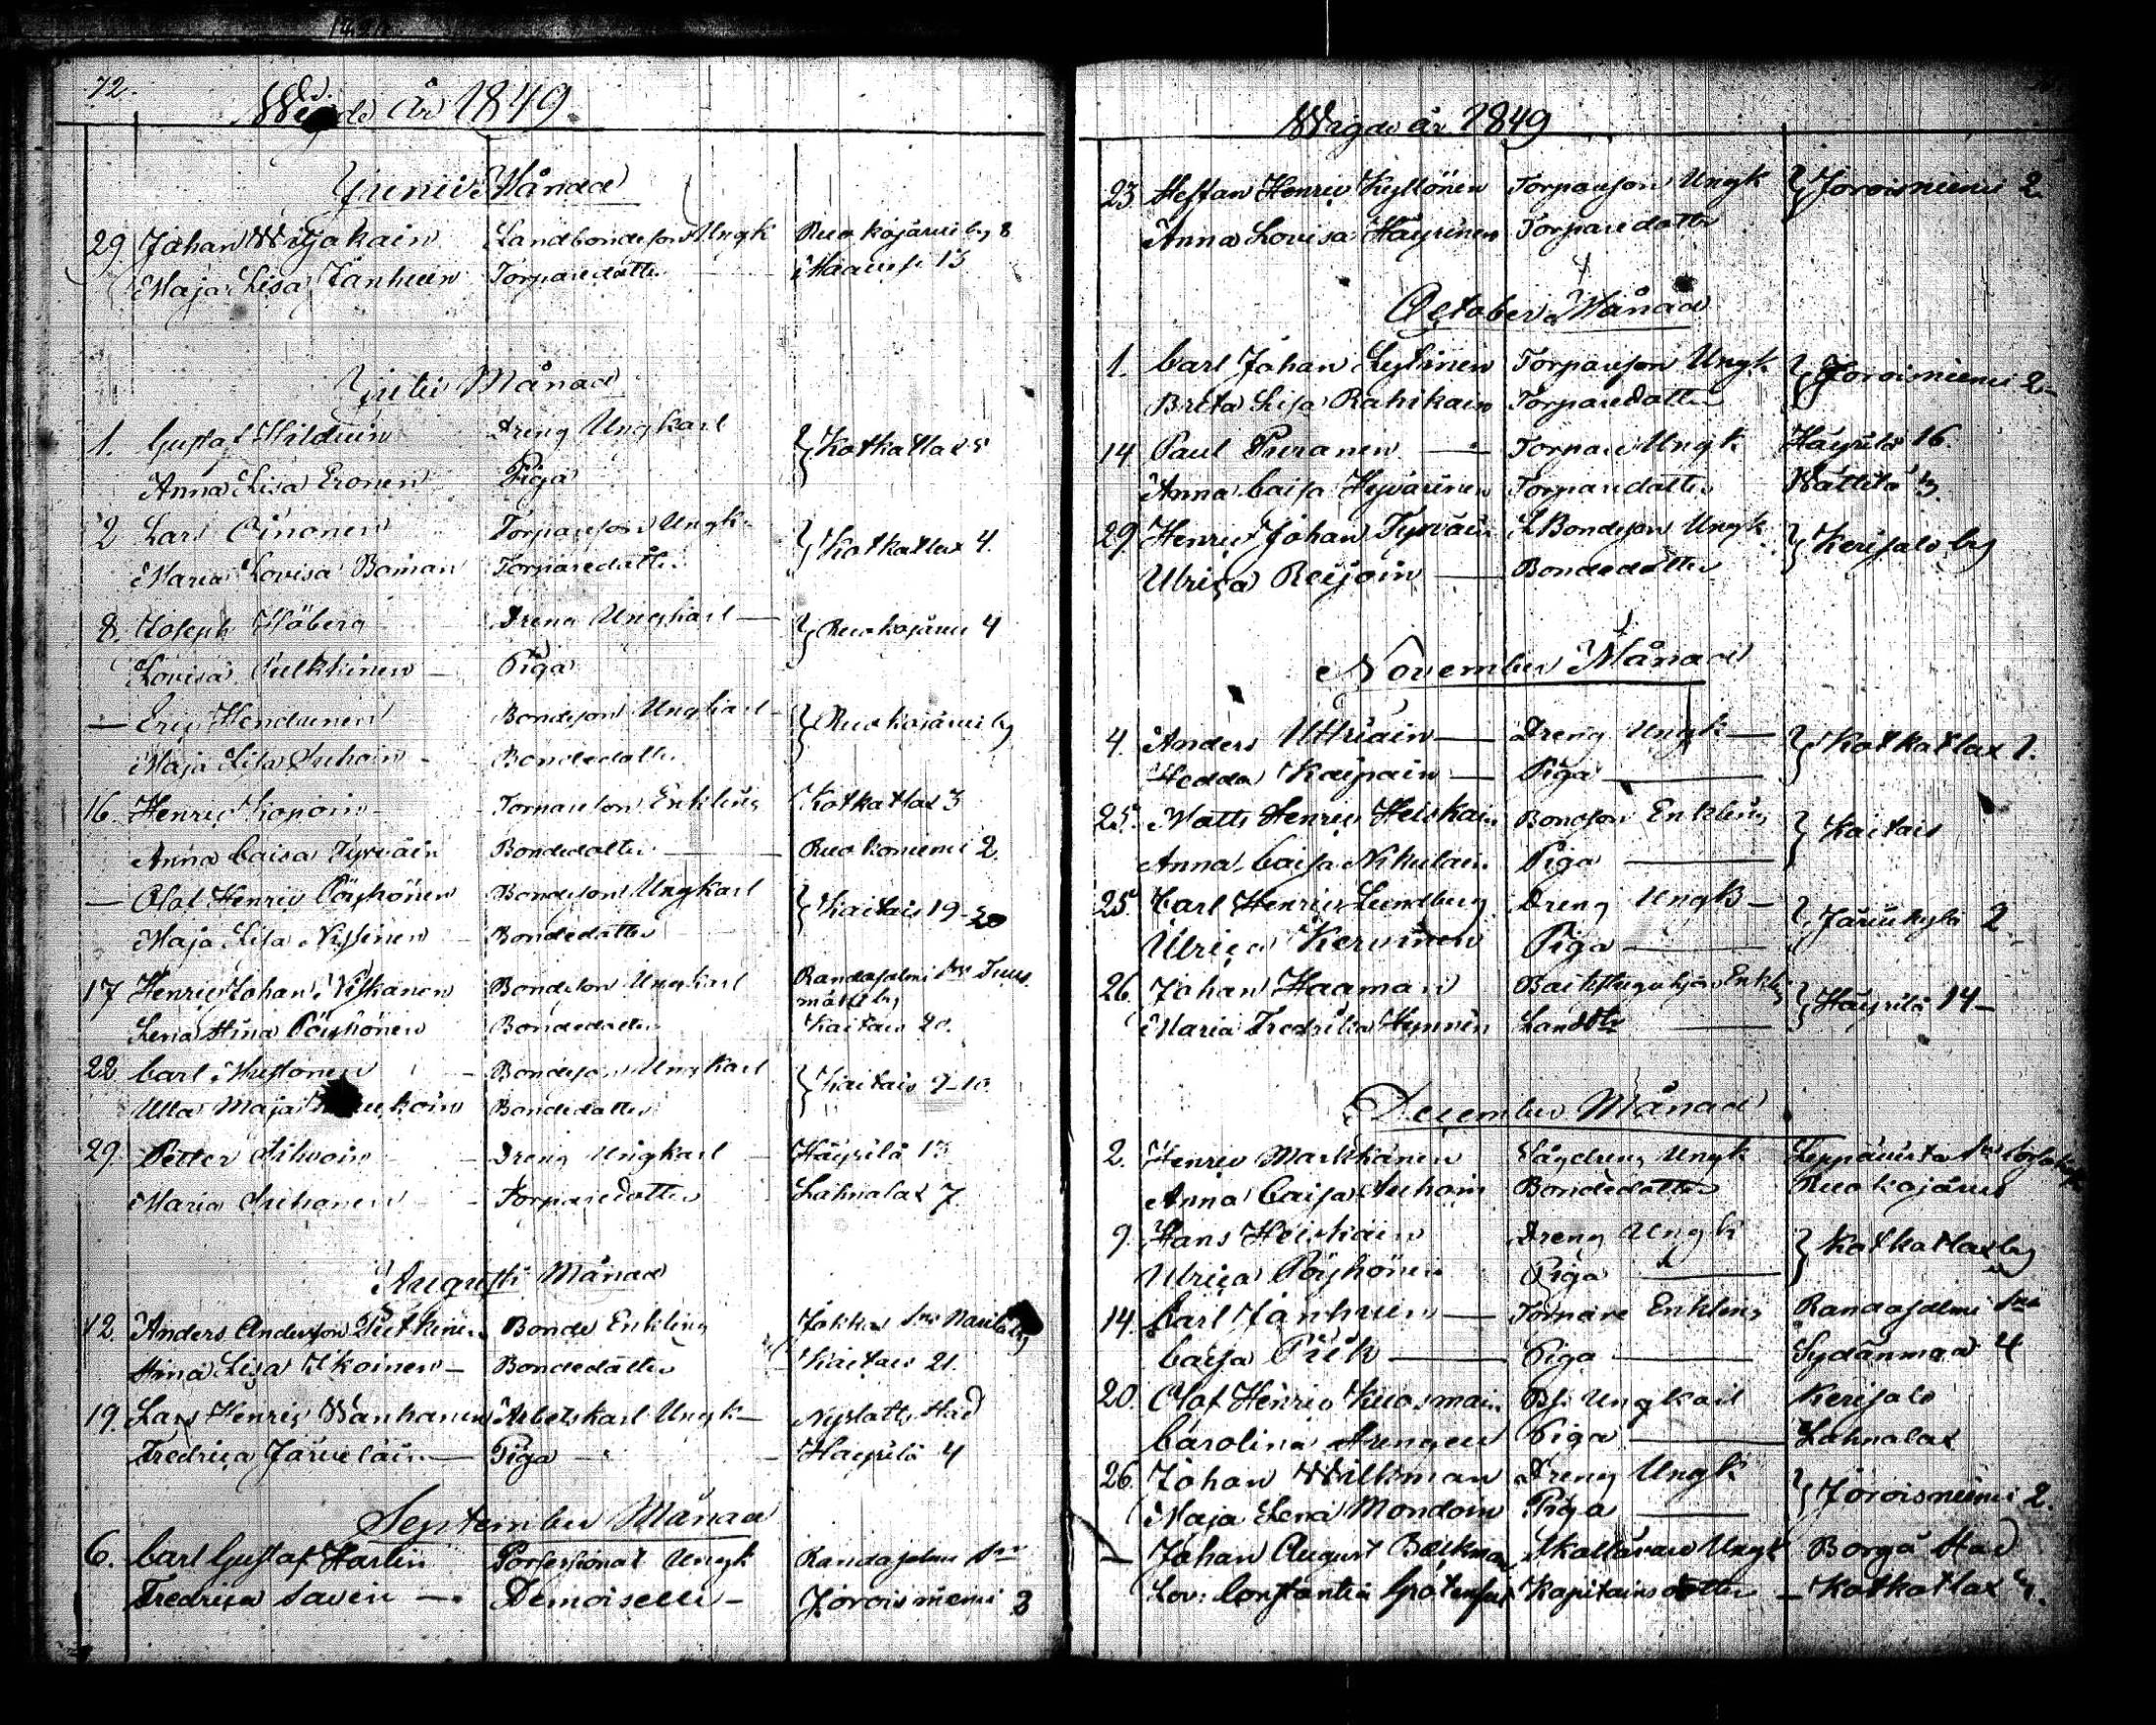 72.
Wigde år 1849
Junii Månad
29 Johan Witjakain Landbondeson Ungk Ruokojärvi by 8
Maja Lisa Tanhuin Torparedotter 13
Julii Månad
1. Gustaf Hilduin Dreng Ungkarl } Kotkatlax 5
Anna Lisa Eronen Piga
2 Lars Oinonen Torpareson Ungk. } Kotkatlax 4.
Maria Lovisa Boman Torparedotter
8. Joseph Höberg Dreng Ungkarl } Ruokojärvi 4
Lovisa Pulkkinen Piga
— Eric Hendunen Bondeson Ungkarl } Ruokojärvi by
Maja Lisa Auhoin Bondedotter
16. Henric Kopoin Torpareson Enkling Kotkatlax 3
Anna Caisa Tyrväin Bondedotter Ruokoniemi 2.
— Olof Henric Pöyhönen Bondeson Ungkarl } Kaitais 19-20
Maja Lisa Nissinen Bondedotter
17 Henric Johan Niskanen Bondeson Ungkarl Randasalmi Sn
mäki by
Lena Stina Pöyhönen Bondedotter Kaitais 20.
22 Carl Mustonen Bondeson Ungkarl } Kaitais 9-10.
Ulla Maja Bondedotter
29. Petter Sihvoin Dreng Ungkarl Häyrilä 13
Maria Auhonen Torparedotter Lahnalax 7.
Augusti Månad
12. Anders Andersson Putkinen Bonde Enkling Jokkas Sn
Stina Lisa Ikoinen Bondedotter Kaitais 21.
19. Lars Henric Wanhanen Arbetskarl Ungk Nyslotts Stad
Fredrica Järveläin Piga Häyrilä 4
September Månad
6. Carl Gustaf Harlin Possessionat Ungk Randasalmi Sn
Fredrica Savén Demoiselle Joroisniemi 3
Wigde år 1849
23 Steffan Henric Kyllönen Torpareson Ungk } Joroisniemi 2
Anna Lovisa Häyrinen Torparedotter
October Månad
1. Carl Johan Lyytinen Torpareson Ungk } Joroisniemi 2
Brita Lisa Rahikain Torparedotter
14 Paul Puranen Torpare Ungk Häyrilä 16.
Anna Caisa Hyvärinen Torparedotter Wättilä 3.
29. Henric Johan Tyrväin L Bondeson Ungk } Kerisalo by
Ulrica Reijoin Bondedotter
November Månad
4. Anders Uttriain Dreng Ungk } Kotkatlax 1.
Hedda Kaipain Piga
25. Matts Henric Heiskain Bondson Enkling } Kaitais
Anna Caisa Nikulain Piga
25. Carl Henric Lundberg Dreng Ungk } Järvikylä 2
Ulrica Kervinen Piga
26. Johan Haaman Enkling } Häyrilä 14
Maria Fredrika Hynnin
December Månad
2. Henric Markkanen Ungk Leppävirta Sn
Anna Caisa Auhoin Bondedotter Ruokojärvi
9. Hans Heiskain Dreng Ungk } Kotkatlax by
Ulrica Pöyhönen Piga
14. Carl Janhuin Torpare Enkling Randasalmi Sn
Caisa Piik Piga Sydänmaa 4
20. Olof Henric Kuosmain Ungkarl Kerisalo
Carolina Arengen Piga Lahnalax
26. Johan Willman Dreng Ungk } Joroisniemi 2.
Maja Lena Mondoin Piga
— Johan August Bäckman Ungk Borgå Stad
Lov: Constantia Grotenfelt Kapitainsdotter Kotkatlax 4.